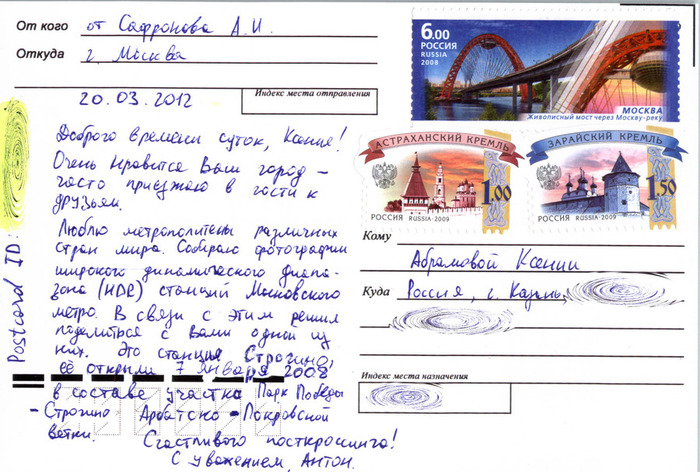 От кого от Сафронова А.И.
Откуда г. Москва
Индекс места отправления
20.03.2012
Доброго времени суток, Ксения!
Очень нравится Ваш город –
часто приезжаю в гости к
друзьям.
Люблю метрополитены различных
стран мира. Собираю фотографии
широкого динамического диапа-
зона (HDR) станций Московского
метро. В связи с этим решил
поделиться с Вами одной из
них. Это станция Строгино,
её открыли 7 января 2008
в составе участка Парк Победы
– Строгино Арбатско – Покровской
ветки.
Счастливого посткроссинга!
С уважением, Антон.
Postcard ID:
6.00
РОССИЯ
RUSSIA
2008
МОСКВА
Живописный мост через Москву-реку
АСТРАХАНСКИЙ КРЕМЛЬ
1.00
РОССИЯ RUSSIA·2009
ЗАРАЙСКИЙ КРЕМЛЬ
1.50
РОССИЯ RUSSIA·2009
Кому Абрамовой Ксении
Куда Россия, г. Казань,
Индекс места назначения